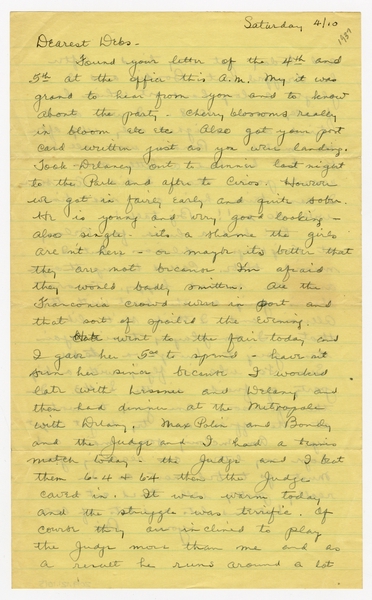 Saturday 4/10
1937
Dearest Debs -
Found your letter of the 4th and
5th at the office this A.M. My it was
grand to hear from you and to know
about the party - cherry blossoms really
in bloom, etc etc. Also got your post
card written just as you were landing.
Took Delaney out to dinner last night
to the Park and after to Ciros. However
we got in fairly early and quite sober.
He is young and very good looking -
also single. its a shame the girls
aren't here - or maybe its better that
they are not because I'm afraid
they would badly smitten. All the
Franconia crowd were in port and
that sort of spoiled the evening.
went to the fair today and
I gave her 5.00 to spend - have not
seen her since because I worked
late with and Delaney and
then had dinner at the Metropole
with Delany. Max Polin and Bondy
and the Judge and I had a tennis
match today - the Judge and I beat
them 6-4 & 6-4 then the Judge
caved in. It was warm today
and the struggle was terrific. Of
course they are inclined to play
the Judge more than me and as
a result he runs around a lot